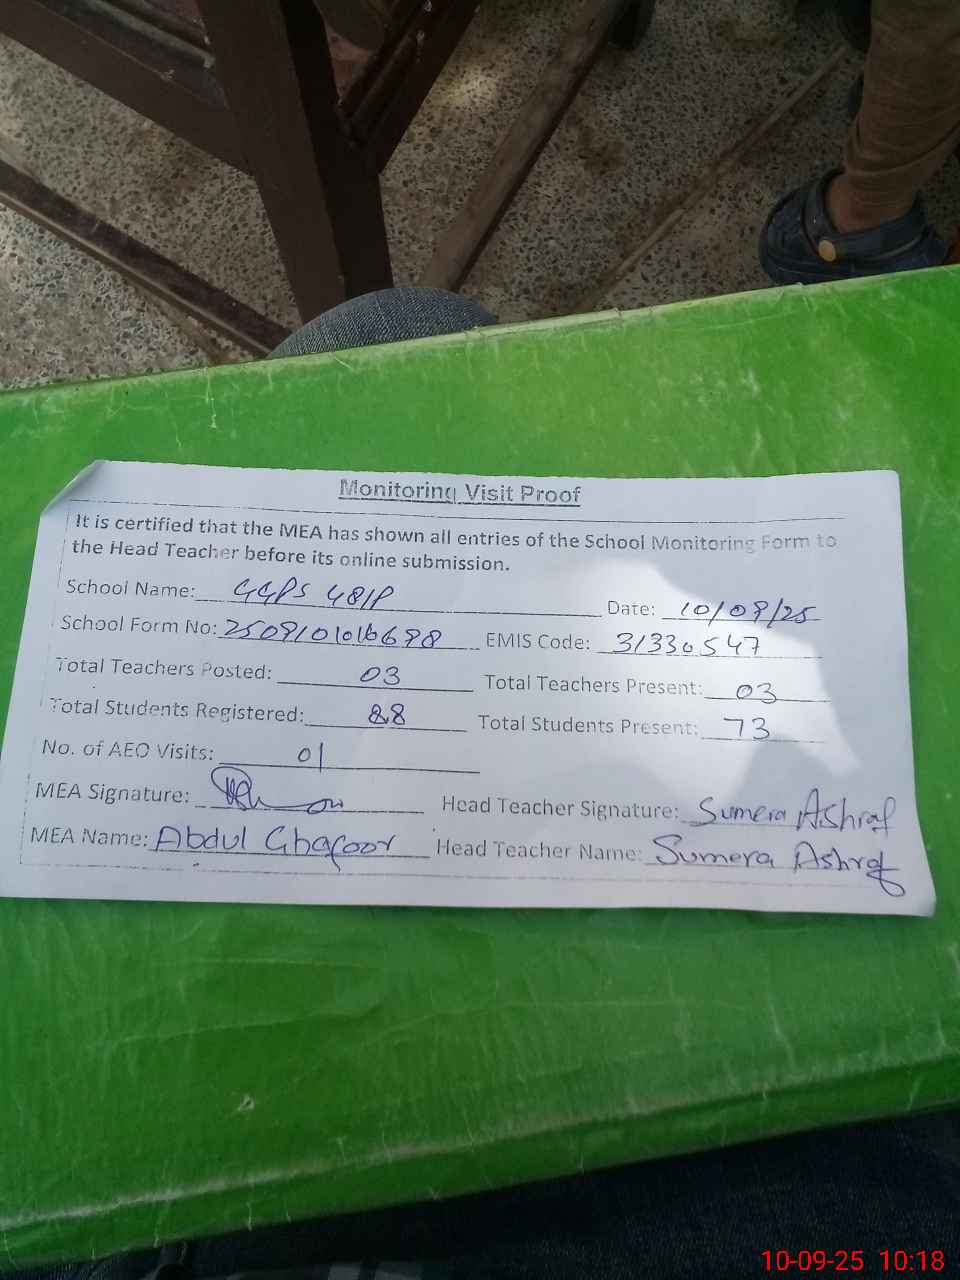 Monitoring Visit Proof
It is certified that the MEA has shown all entries of the School Monitoring Form to
the Head Teacher before its online submission.
School Name: GGPS 48/P Date: 10/09/25
School Form No: EMIS Code: 31330547
Total Teachers Posted: 03 Total Teachers Present: 03
Total Students Registered: 88 Total Students Present: 73
No. of AEO Visits: 01
MEA Signature: Head Teacher Signature: Sumera Ashraf
MEA Name: Abdul Ghafoor Head Teacher Name: Sumera Ashraf
10-09-25 10:18